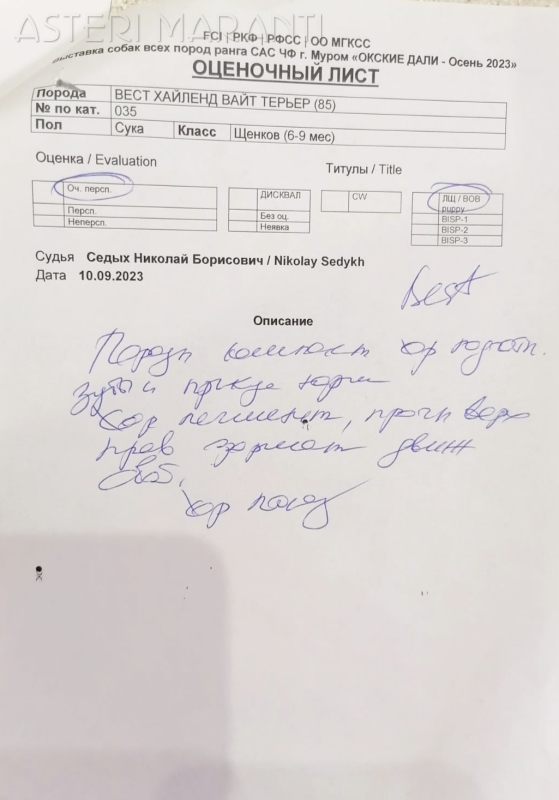 ASTERI MARANTI
FCI | РКФ | РФСС | ОО МГКСС
выставка собак всех пород ранга САС ЧФ г. Муром «ОКСКИЕ ДАЛИ - Осень 2023»
ОЦЕНОЧНЫЙ ЛИСТ
Порода ВЕСТ ХАЙЛЕНД ВАЙТ ТЕРЬЕР (85)
№ по кат. 035
Пол Сука Класс Щенков (6-9 мес)
Оценка / Evaluation Титулы / Title
Оч. персп. ДИСКВАЛ CW ЛЩ / BOB puppy
Персп. Без оц. BISP-1
Неперсп. Неявка BISP-2
BISP-3
Судья Седых Николай Борисович / Nikolay Sedykh
Дата 10.09.2023
Best
Описание
Породн компакт хор
зубы и прикус норм
Хор пигмент,
прав формат движ
хор показ